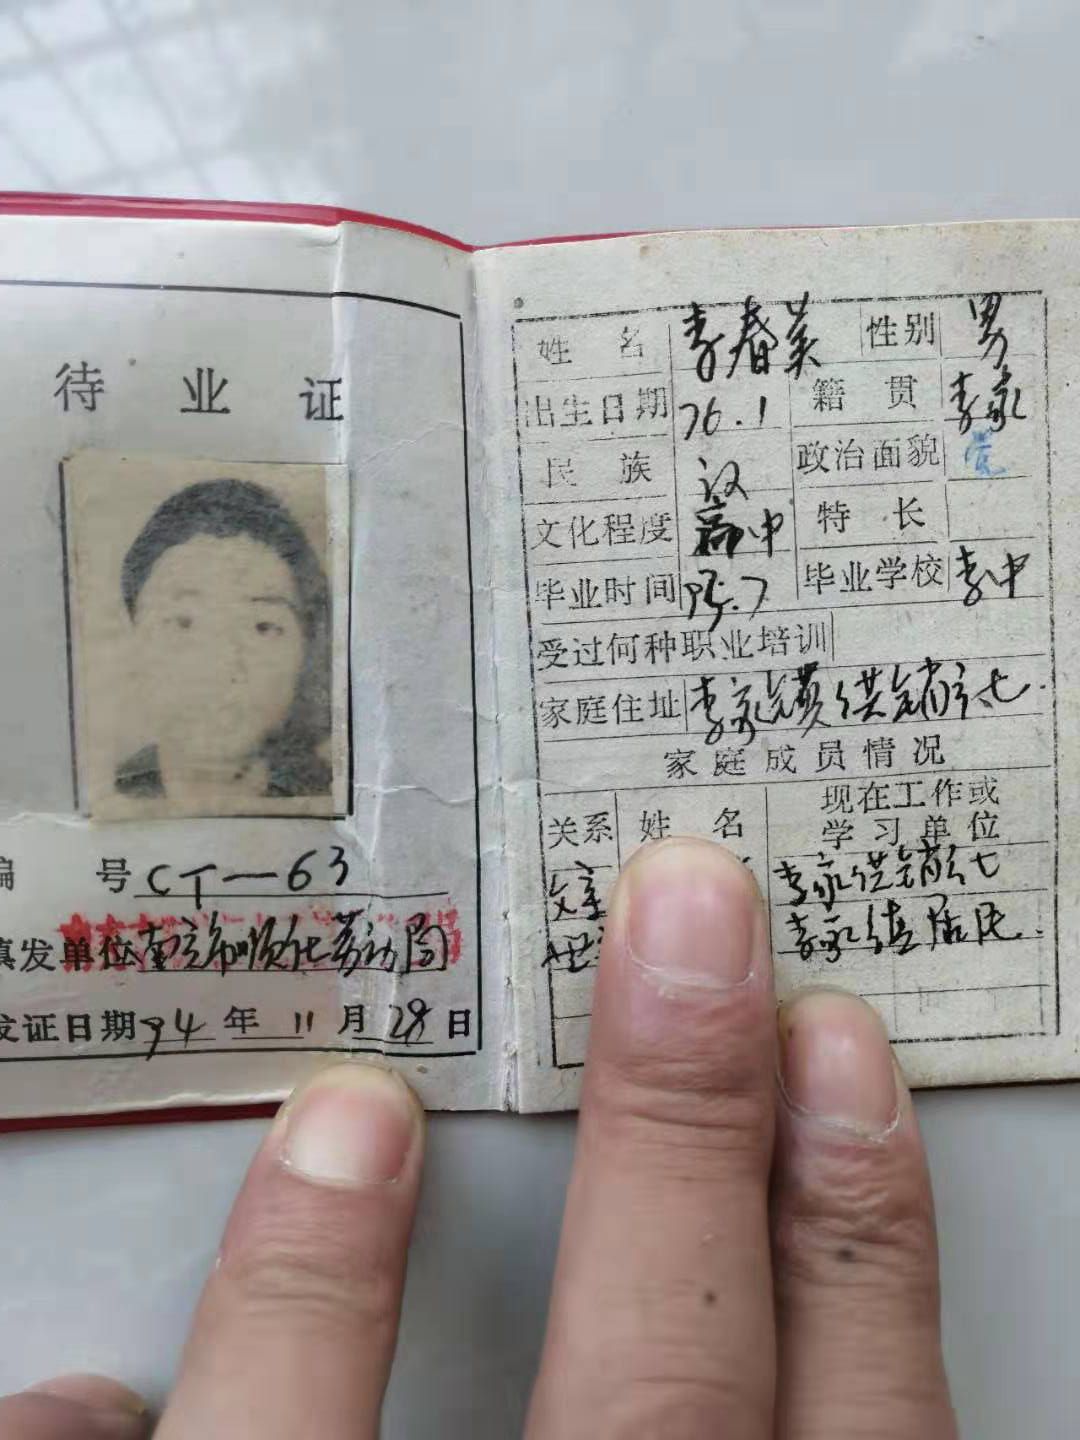 待业证
编号 CT—63
填发单位 南充市顺 劳动局
发证日期 94年11月28日
姓名 李春英 性别 男
出生日期 76.1 籍贯 李家
民族 汉 政治面貌
文化程度 高中 特长
毕业时间 95.7 毕业学校 李中
受过何种职业培训
家庭住址 李家镇供销社
家庭成员情况
关系 姓名 现在工作或学习单位
父亲 李家供销社
李家镇居民